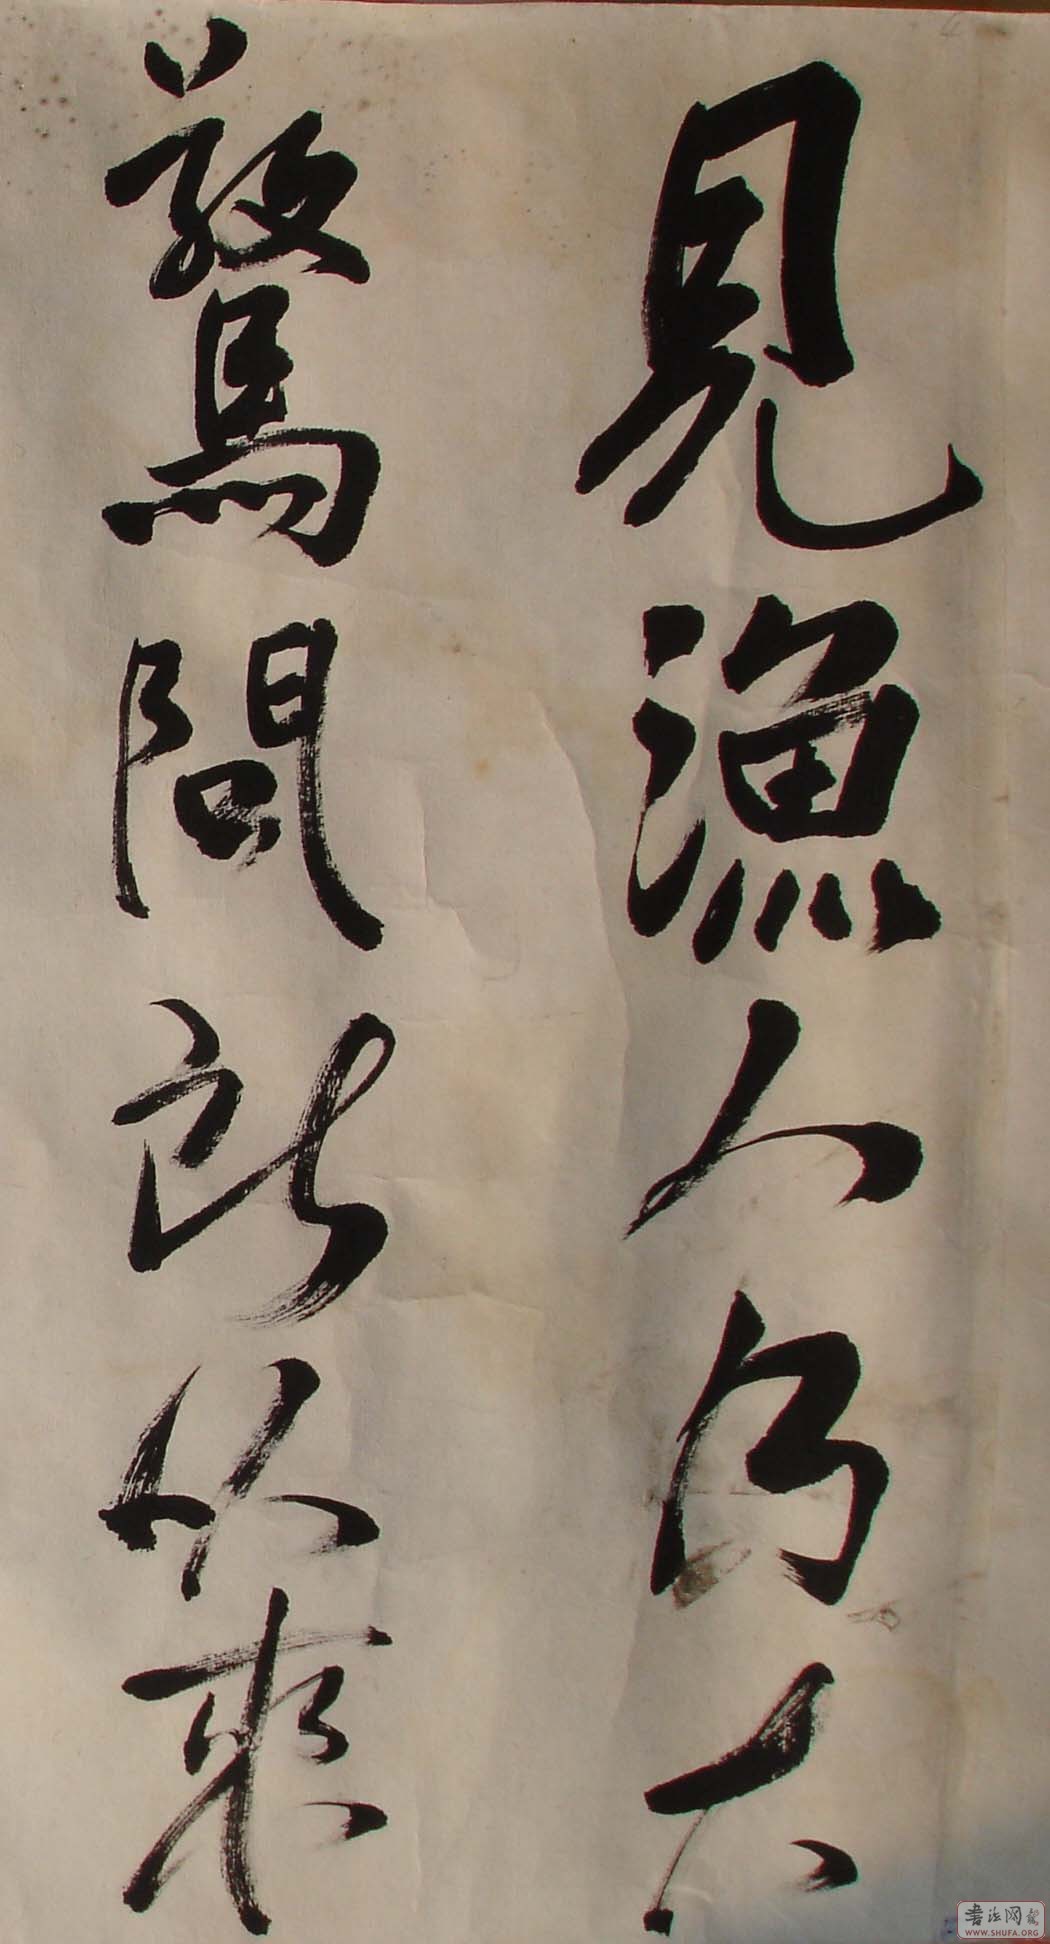 見漁人乃大
驚問所從來
书法网
WWW.SHUFA.ORG